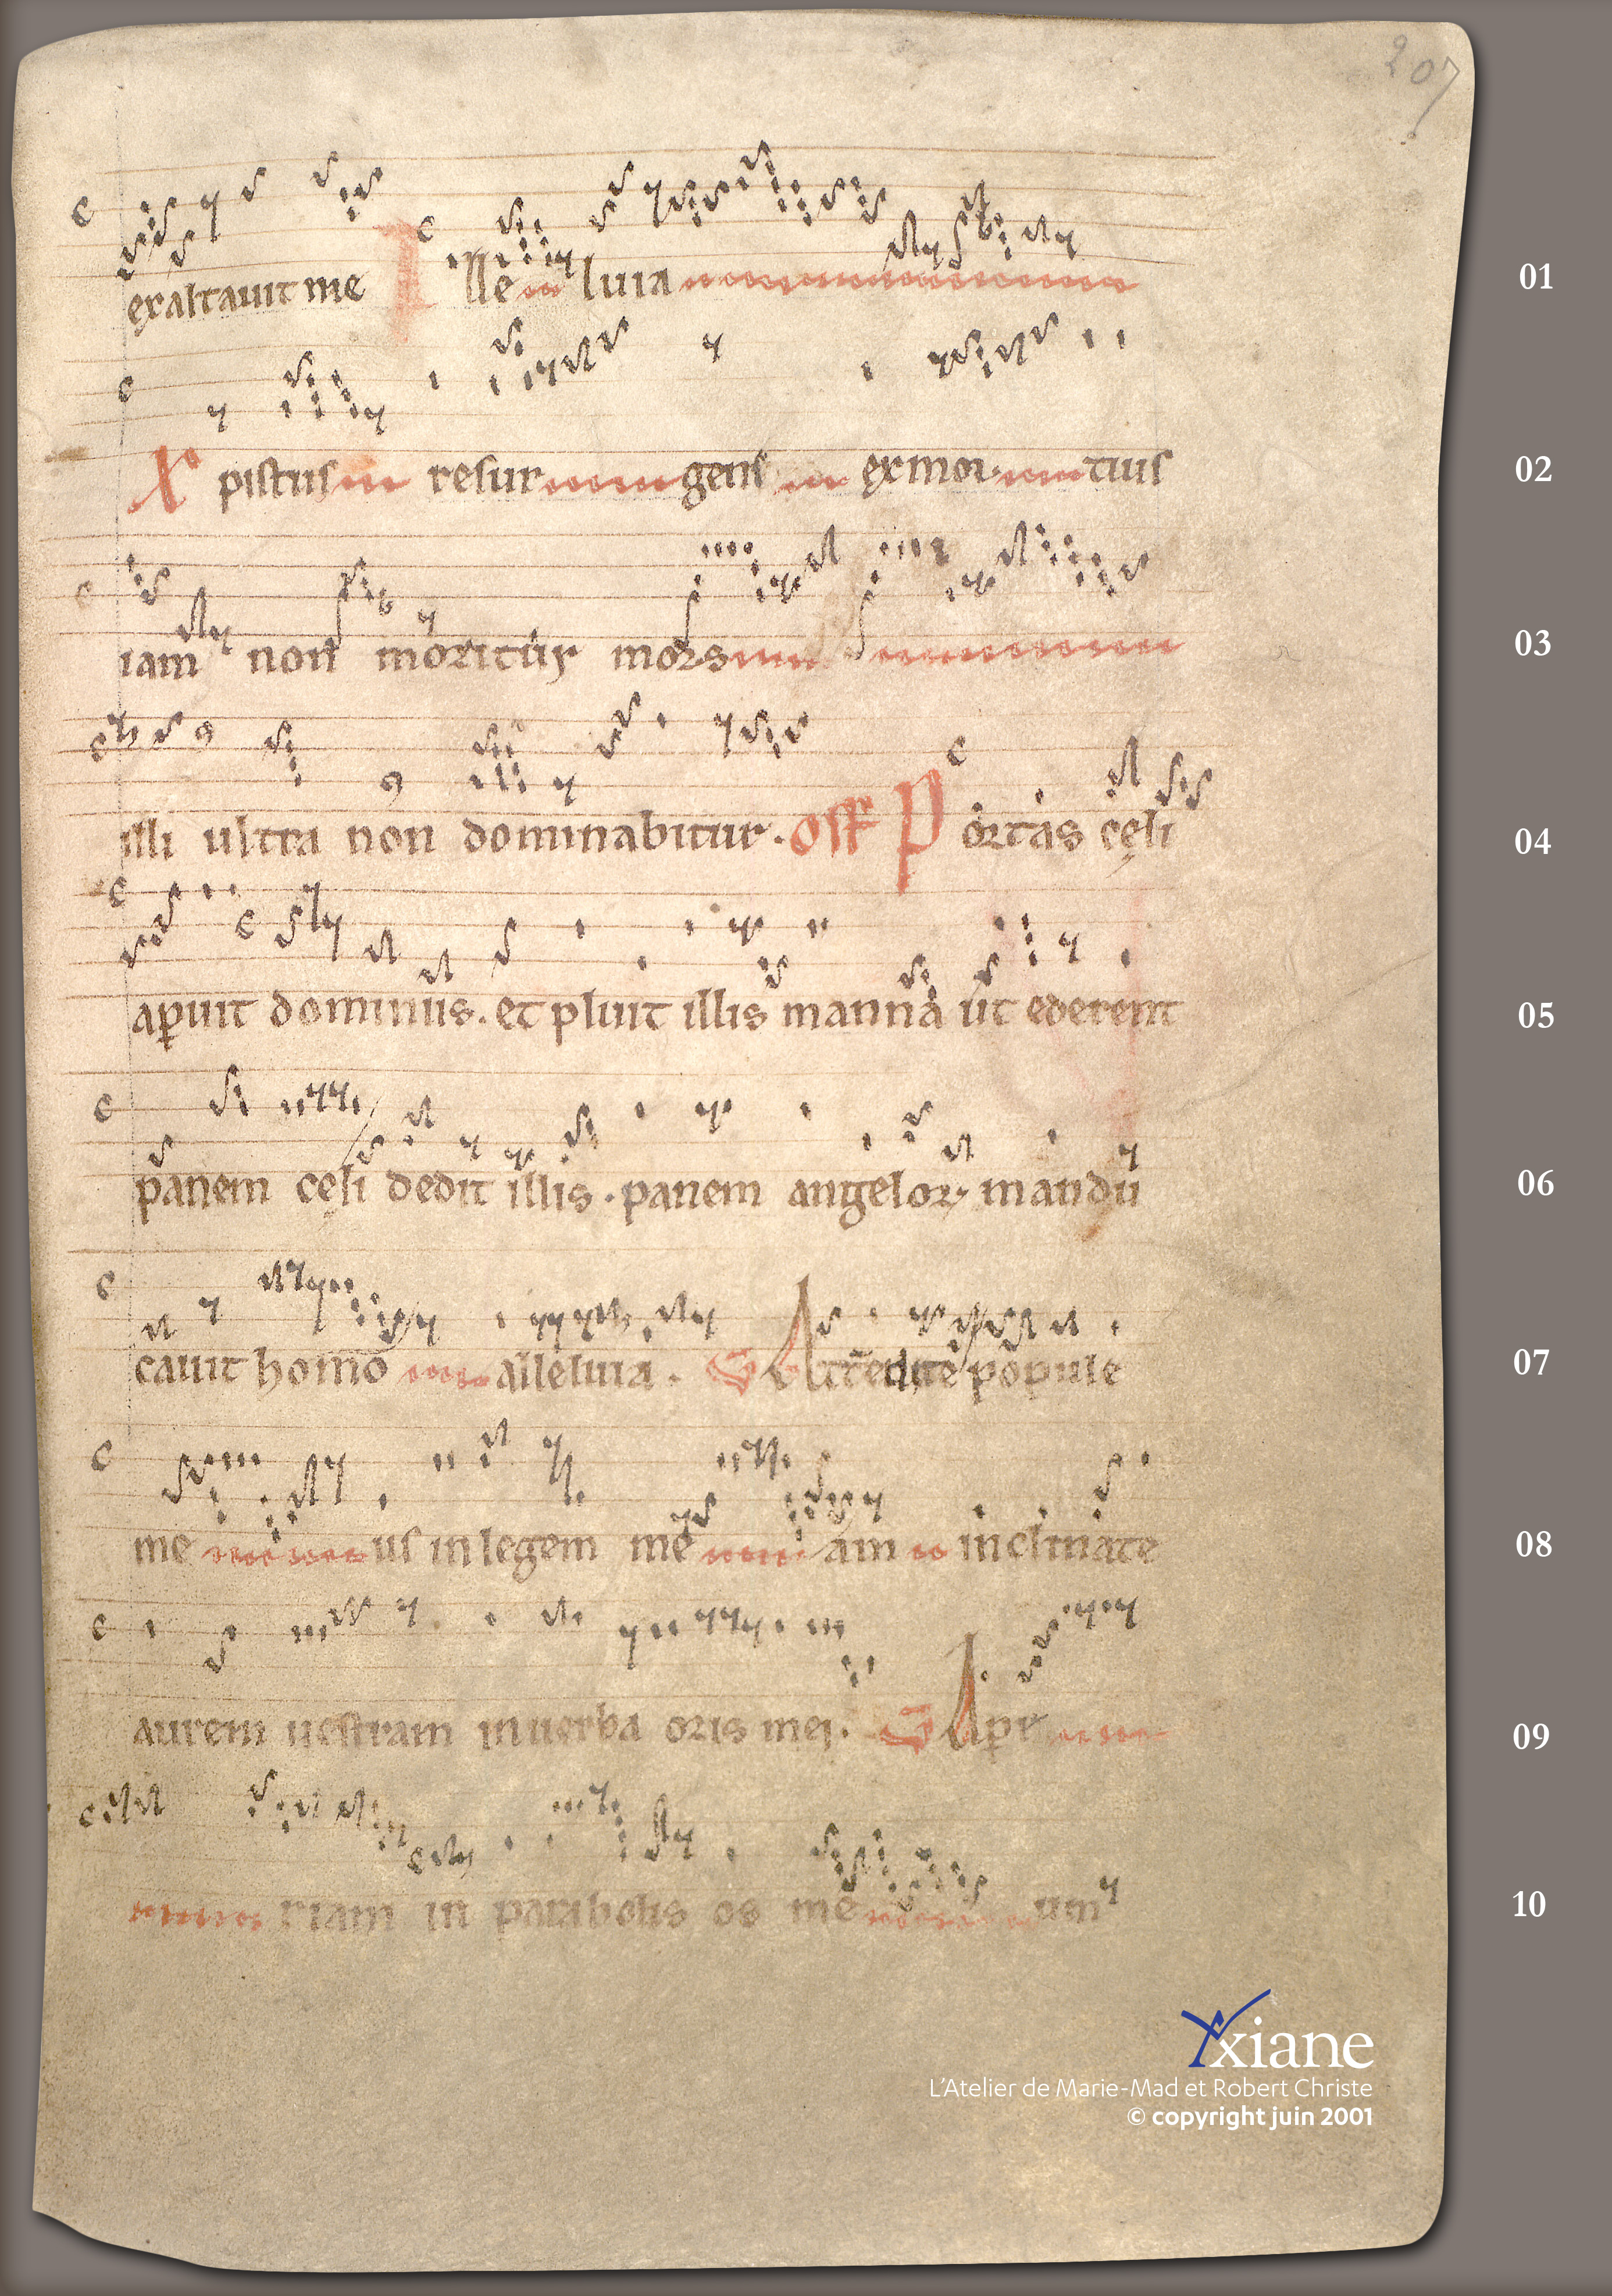 207
exaltauit me Alle luia
01
Xpistus resur gens ex mor tuis
02
iam non moritur mors
03
illi ultra non dominabitur. Off Portas cęli
04
aperuit dominus. et pluit illis manna ut ederent
05
panem cęli dedit illis. panem angelor mandu
06
cauit homo alleluia. Attendite popule
07
me us in legem me am inclinate
08
aurem uestram in uerba oris mei. Ape
09
riam in parabolis os me um
10
Xxiane
L'Atelier de Marie-Mad et Robert Christe
© copyright juin 2001